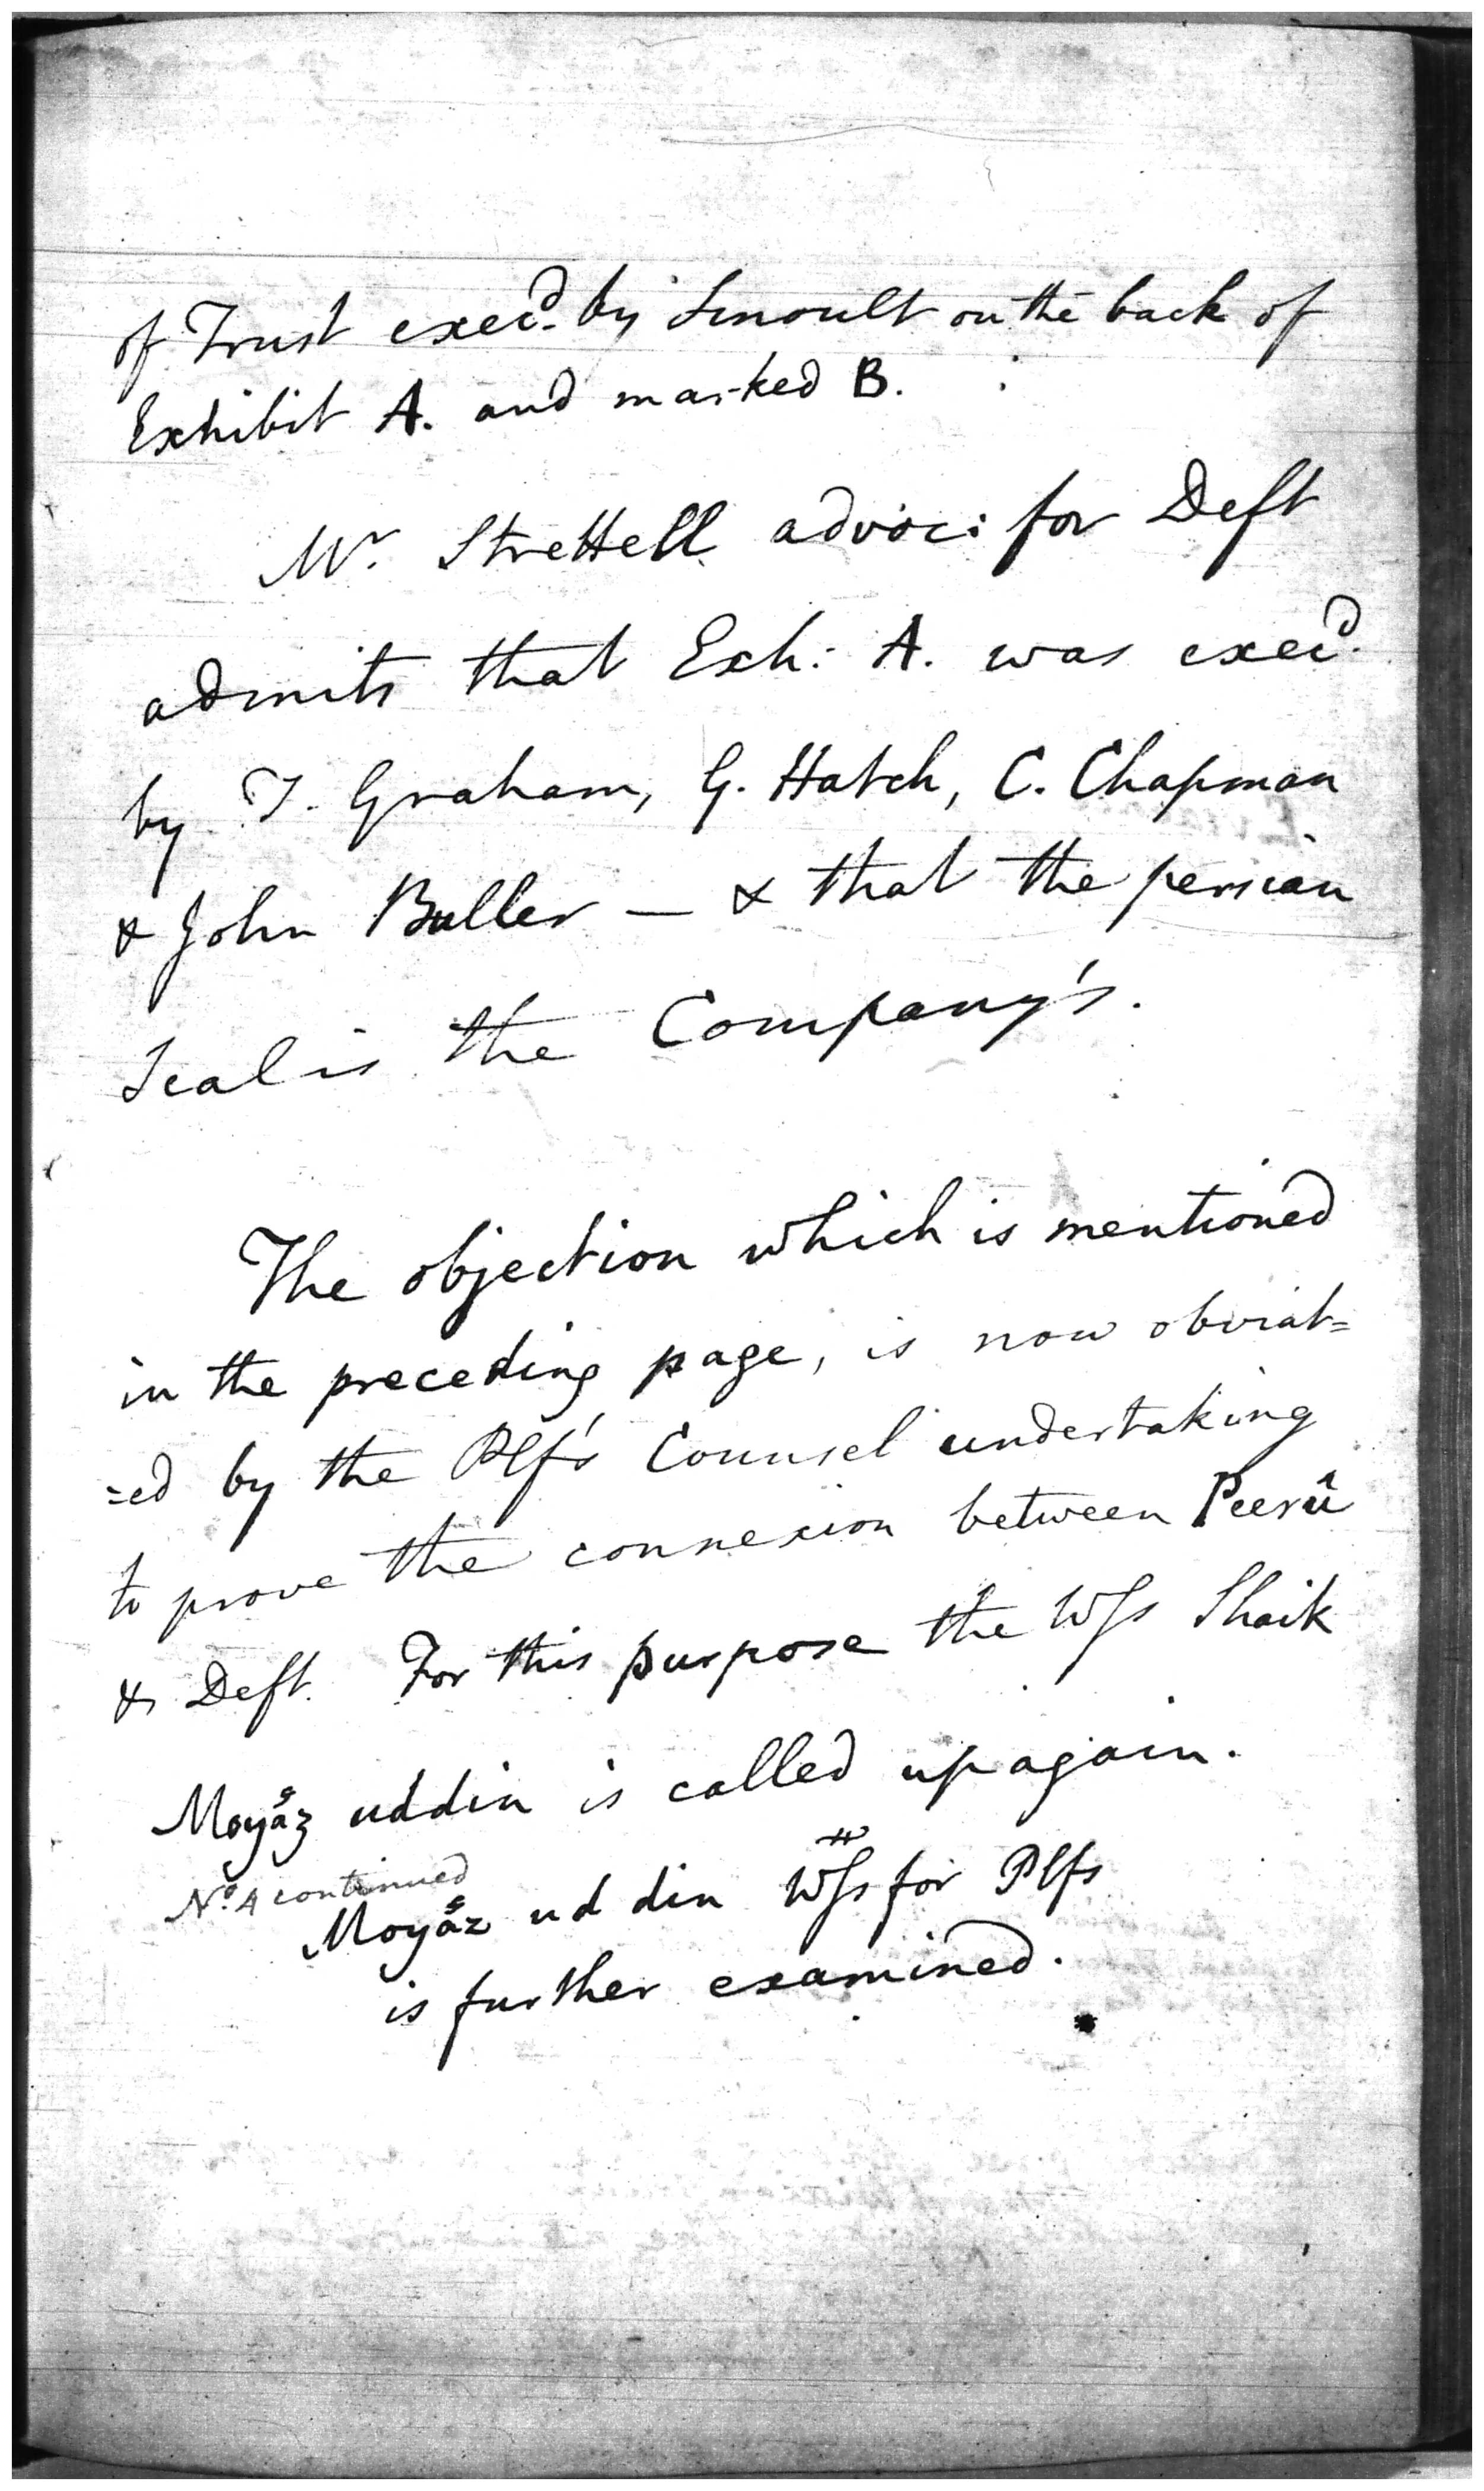 of Trust exec^d. by Smoult on the back of
Exhibit A. and marked B.
M^r. Strettell advoc: for Deft
admits that Exh: A. was exec^d.
by T. Graham, G. Hatch, C. Chapman
& John Buller — & that the persian
Seal is the Company's.
The objection which is mentioned
in the preceding page, is now obviat=
=ed by the Plf's Counsel undertaking
to prove the connexion between Peerû
& Deft. For this purpose the Wss Shaik
Moyåz uddin is called up again.
N^o. 4 continued
Moyåz ud din Wss for Plfs
is further examined.